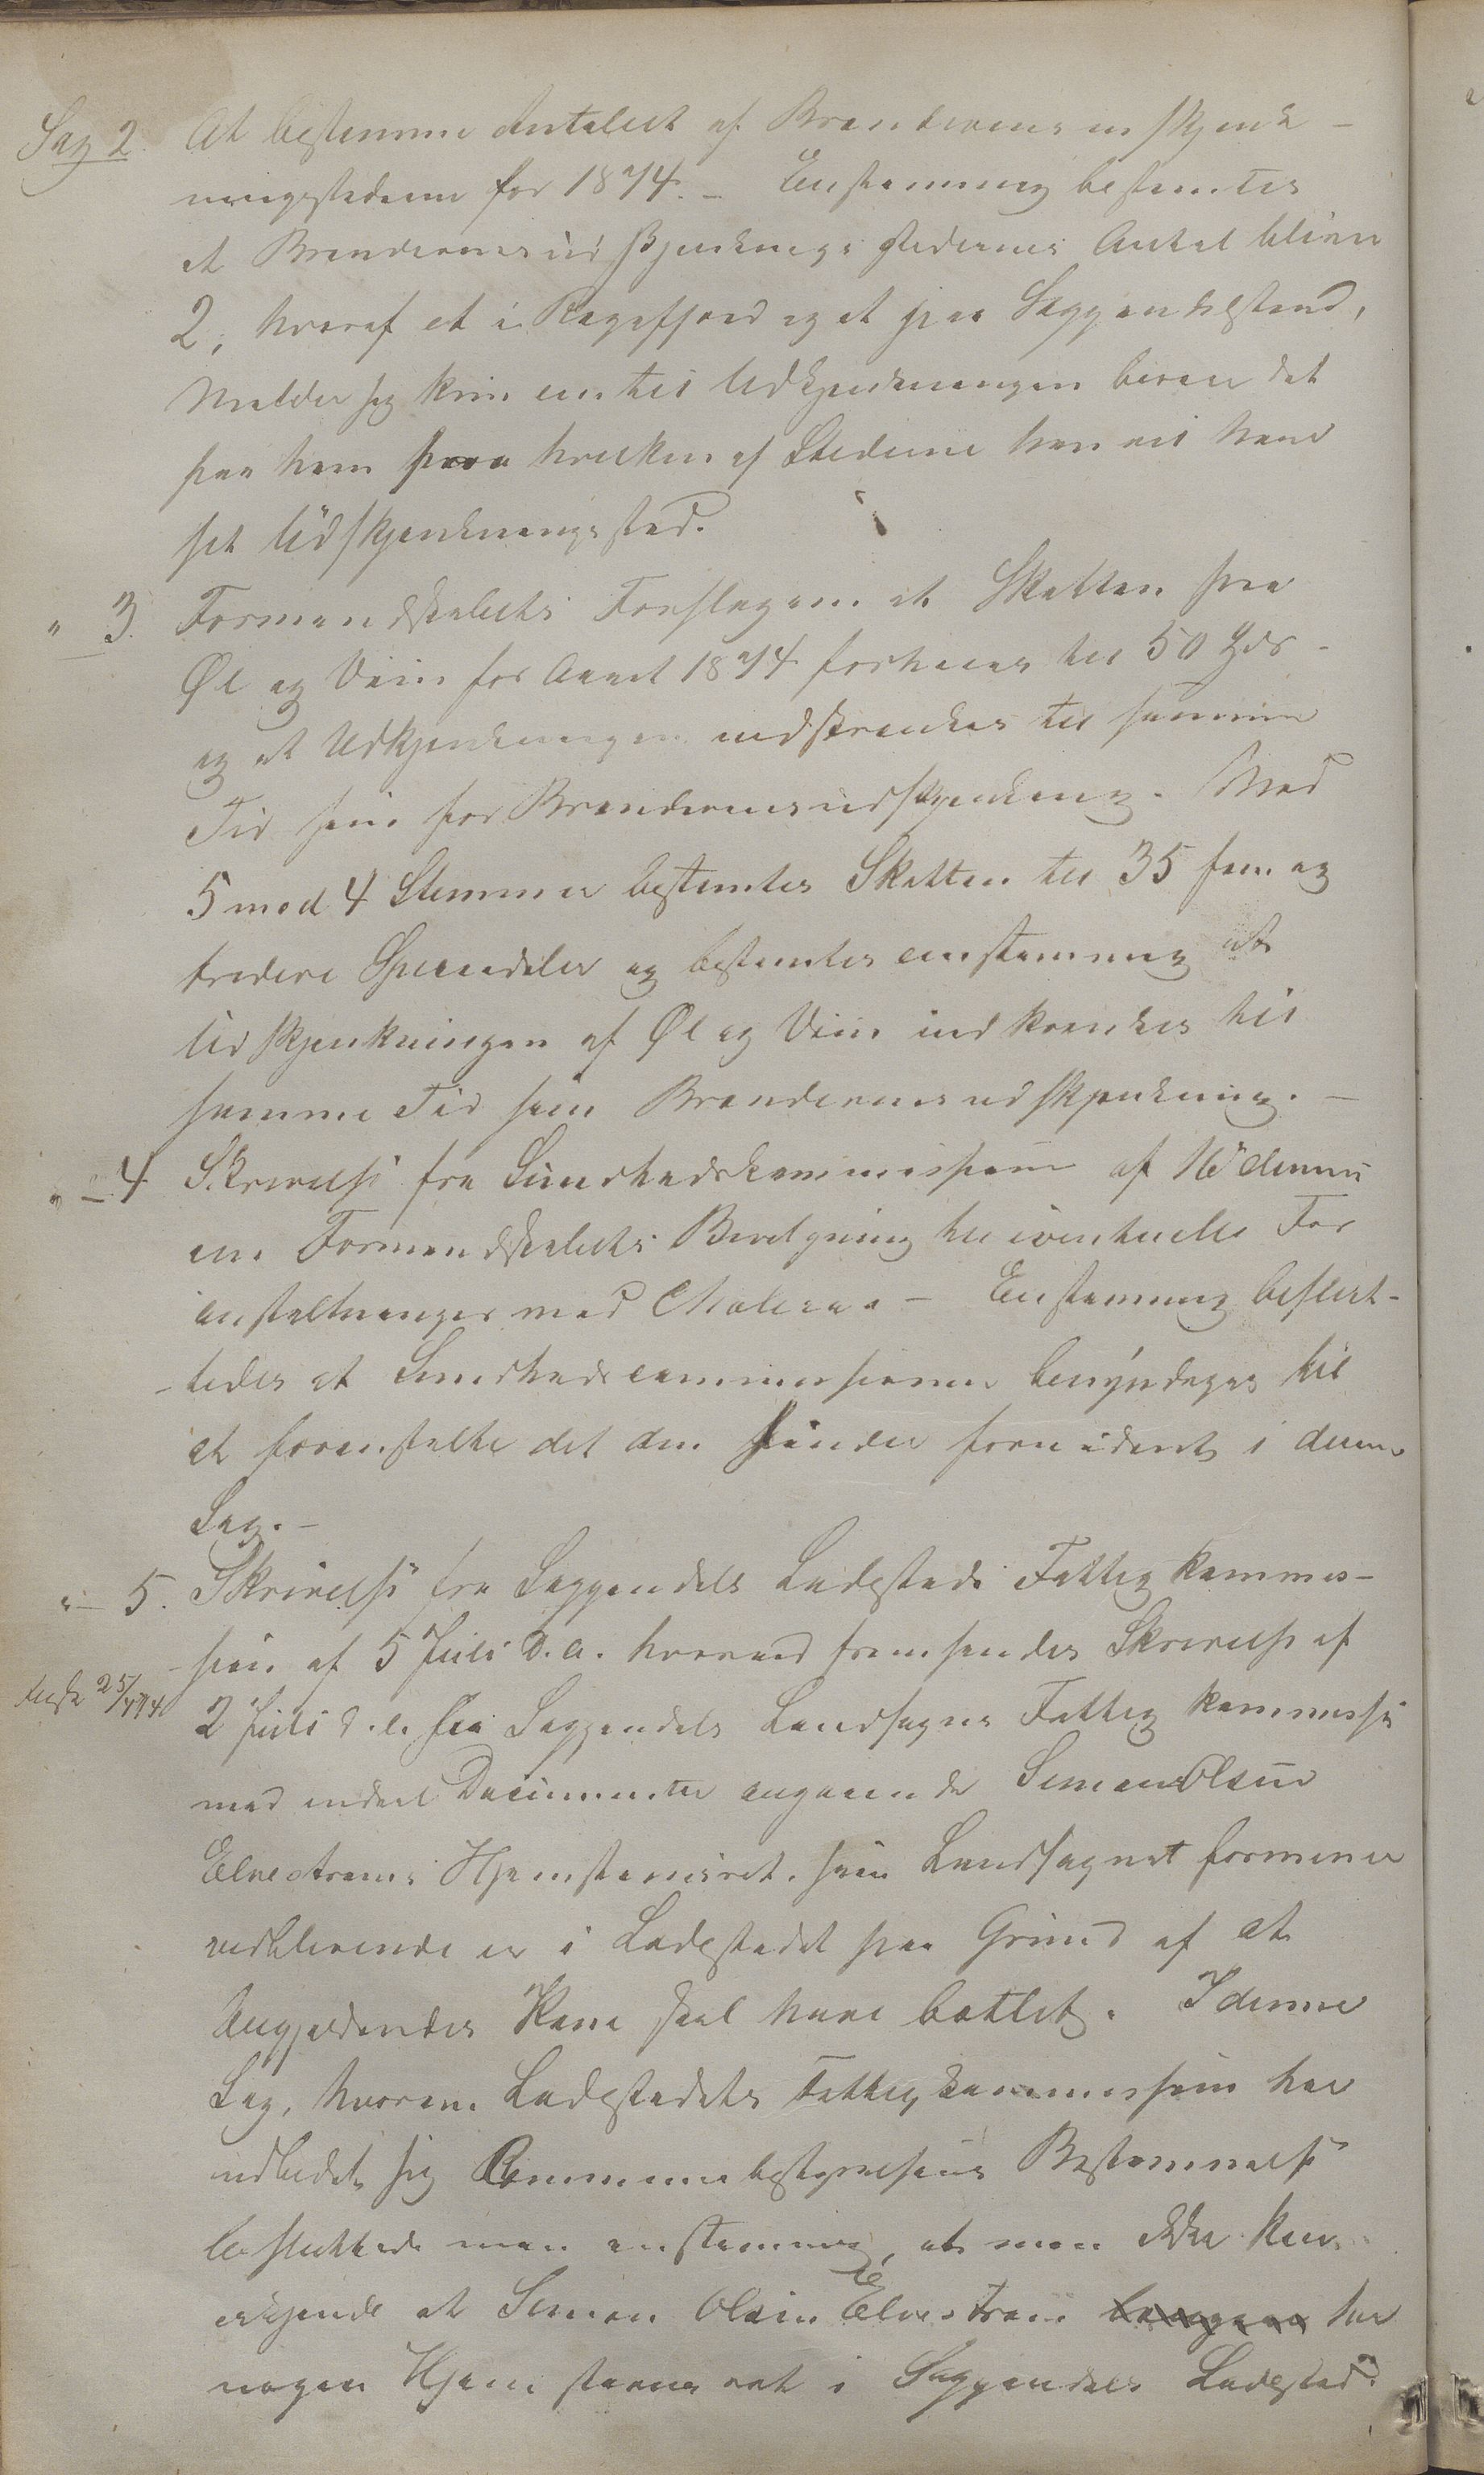 Sag 2. At bestemme Antallet af Brændevinsudskjænk-
ningsstederne for 1874. - Eenstemmig bestemtes
at Brændeviinsudskjænkningsstedernes Antal bliver
2, hvoraf et i Rægefjord og et paa Soggendalstrand,
Melder sig kun een til Udskjænkningen beroer det
paa ham paa hvilken af Stederne han vil have
sit Udskjænkningssted.
" 3. Formandskabets Forslag om at Skatten paa
Øl og Viin for Aaret 1874 forhøies til 50 Spdr -
og at Udskjænkningen indskrænkes til samme
Tid som for Brændeviinsudskjænkning. Med
5 mod 4 Stemmer bestemtes Skatten til 35 fem og
tredive Speciedaler og bestemtes eenstemmig at
Udskjænkningen af Øl og Viin indskrænkes til
samme Tid som Brændeviinsudskjænkning. -
" - 4 Skrivelse fra Sundhedskommissionen af dennes
om Formandskabets Bevilgning til eventuelle For
anstaltninger mod Cholera - Eenstemmig beslut-
-tedes at Sundhedscommissionen bemyndiges til
at foranstalte det den finder fornødent i denne
Sag. -
" - 5. Skrivelse fra Soggendals Ladesteds Fattigkommis-
sion af 5 Juli d. A. hvorved fremsendes Skrivelse af
25/4 74
2 Juli d. A. fra Soggendals Landsogns Fattigkommissi
med endeel Documenter angaaende Simon Olsen
Elvestrøms Hjemstavnsret, som Landsognet formener
vedblivende er i Ladestedet paa Grund af at
Angjældendes Kone skal have betlet. I denne
Sag, hvorom Ladestedets Fattigkommission har
udbedet sig Communebestyrelsens Bestemmelse
besluttede man eenstemmig, at man ikke kan
erkjende at Simon Olsen Elvestrøm har
nogen Hjemstavnsret i Soggendals Ladested.